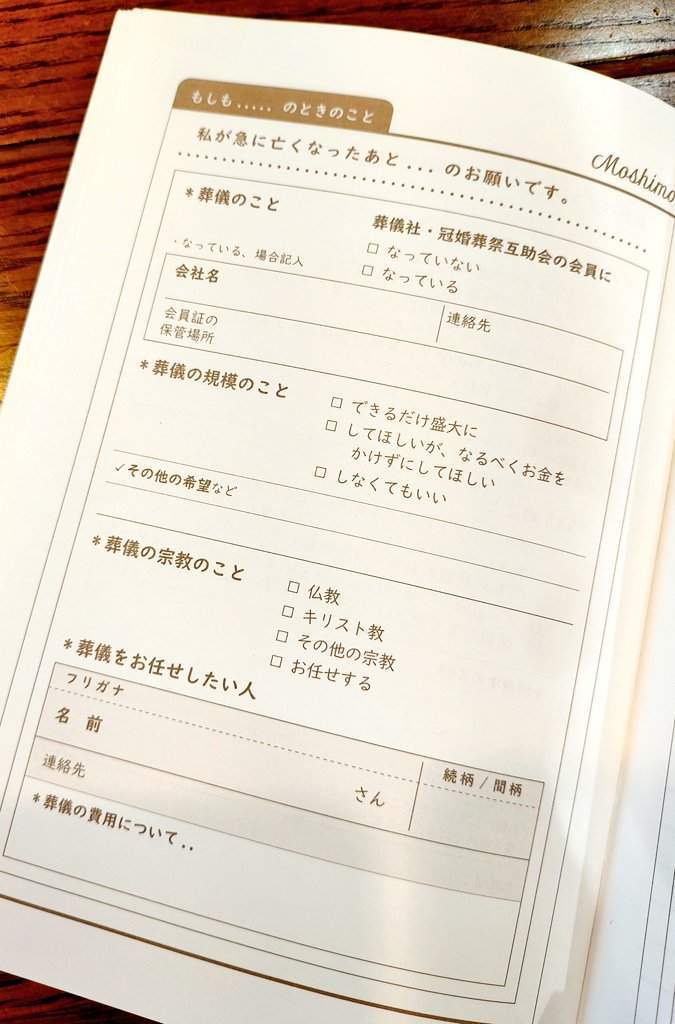 もしも..... のときのこと
私が急に亡くなったあと... のお願いです。
Moshimo
*葬儀のこと
葬儀社・冠婚葬祭互助会の会員に
□ なっていない
□ なっている
・なっている、場合記入
会社名
連絡先
会員証の
保管場所
*葬儀の規模のこと
□ できるだけ盛大に
□ してほしいが、なるべくお金を
かけずにしてほしい
□ しなくてもいい
✓その他の希望など
*葬儀の宗教のこと
□ 仏教
□ キリスト教
□ その他の宗教
□ お任せする
*葬儀をお任せしたい人
フリガナ
名 前
さん
続柄 / 間柄
連絡先
*葬儀の費用について..